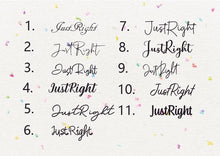 1. JustRight
2. JustRight
3. JustRight
4. JustRight
5. JustRight
6. JustRight
7. JustRight
8. JustRight
9. JustRight
10. JustRight
11. JustRight